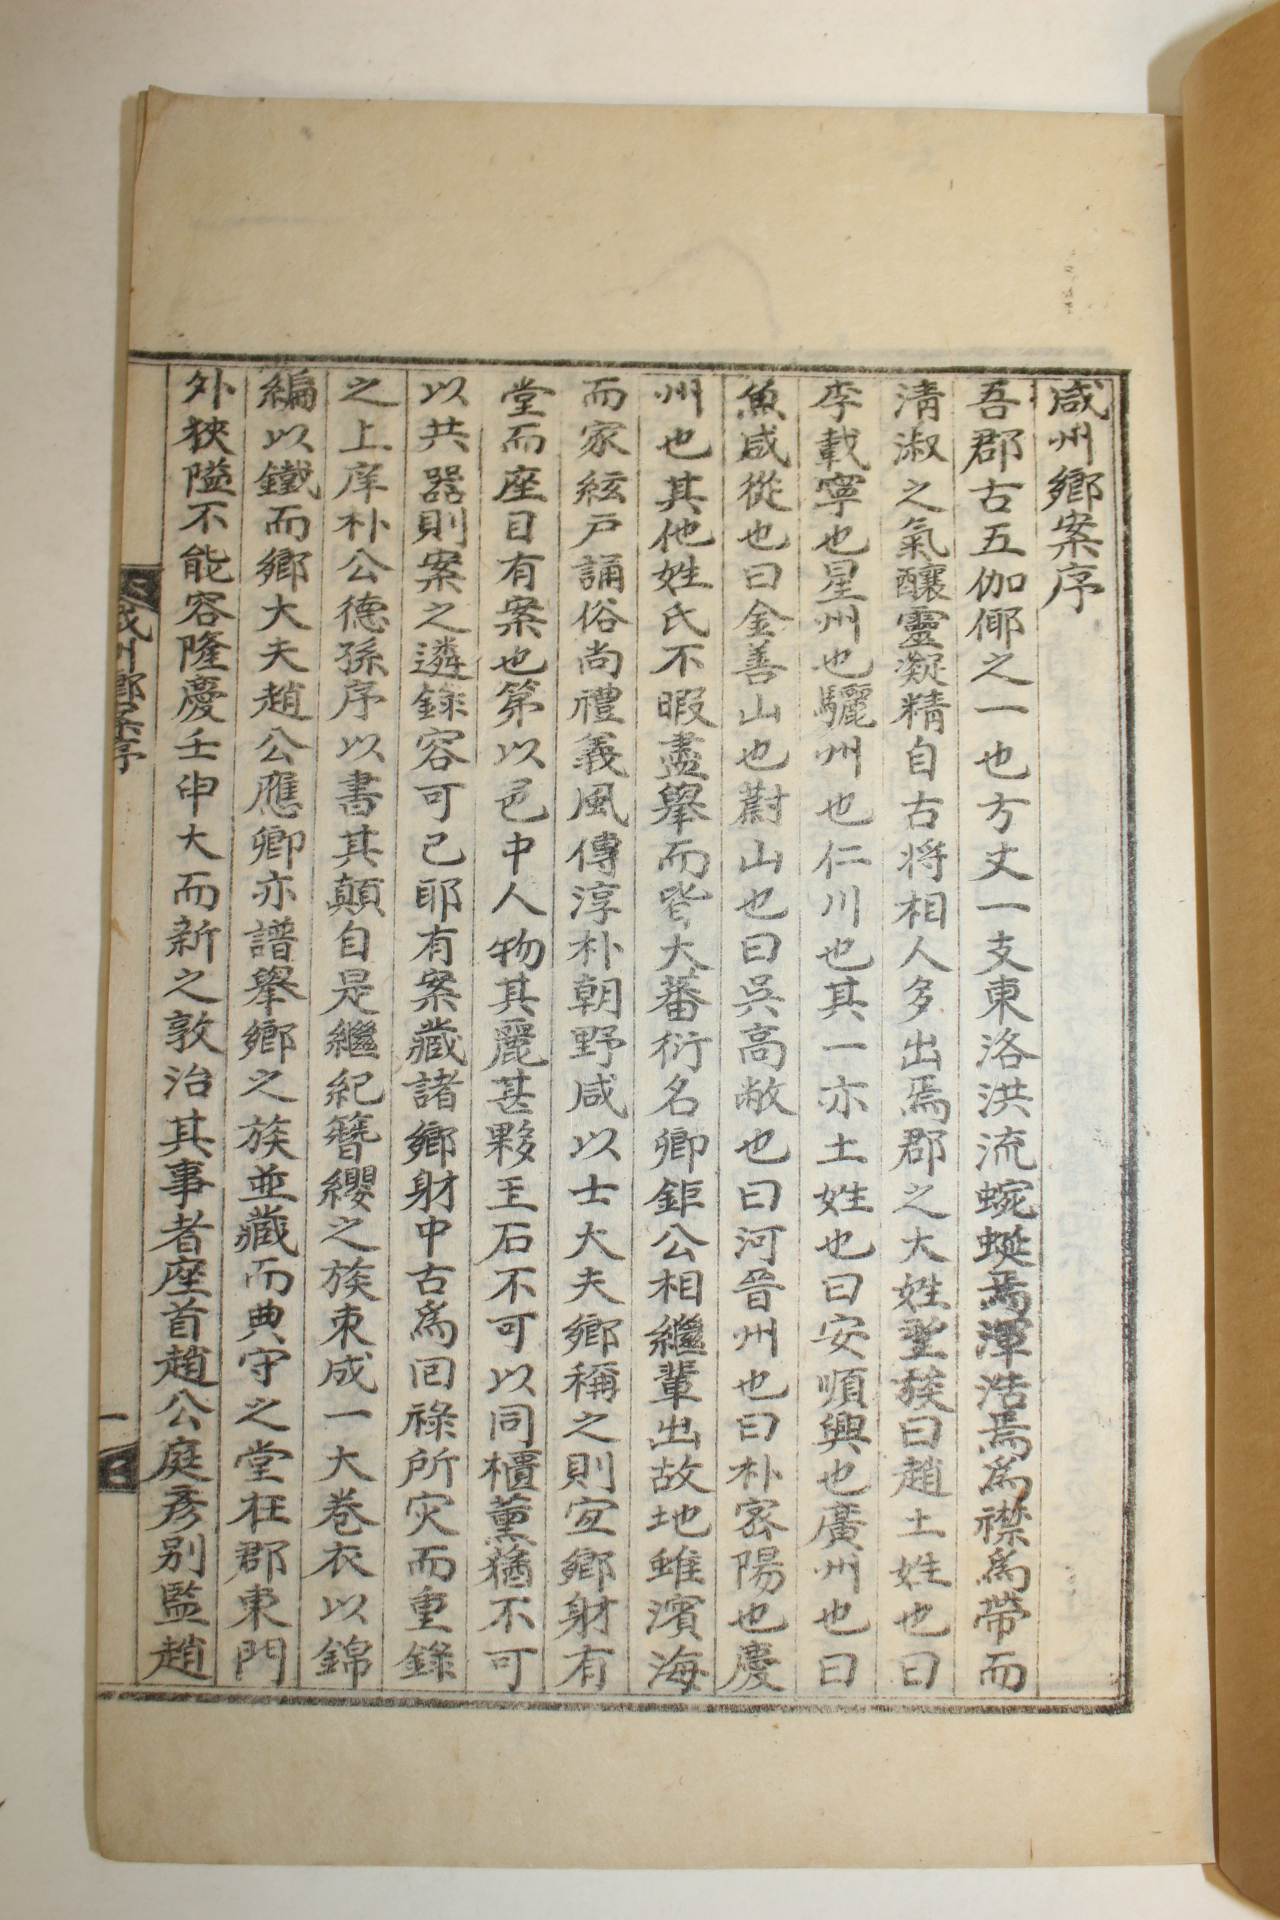 咸州鄉案序
吾郡古五伽倻之一也方丈一支東洛洪流蜿蜒焉渾浩焉爲襟爲帶而
清淑之氣釀靈凝精自古將相人多出焉郡之大姓望族曰趙土姓也曰
李載寧也星州也驪州也仁川也其一亦土姓也曰安順興也廣州也曰
魚咸從也曰金善山也蔚山也曰吳高敞也曰河晉州也曰朴密陽也慶
州也其他姓氏不暇盡擧而皆大蕃衍名卿鉅公相繼輩出故地雖濱海
而家絃戶誦俗尚禮義風傳淳朴朝野咸以士大夫鄉稱之則宜鄉射有
堂而座目有案也第以邑中人物其麗甚夥玉石不可以同櫃薰蕕不可
以共器則案之遴錄容可已耶有案藏諸鄉射中古爲回祿所灾而重錄
之上庠朴公德孫序以書其顛自是繼紀簪纓之族束成一大卷衣以錦
編以鐵而鄉大夫趙公應卿亦譜擧鄉之族並藏而典守之堂在郡東門
外狹隘不能容隆慶壬申大而新之敦治其事者座首趙公庭彥別監趙
咸州鄉案序
一